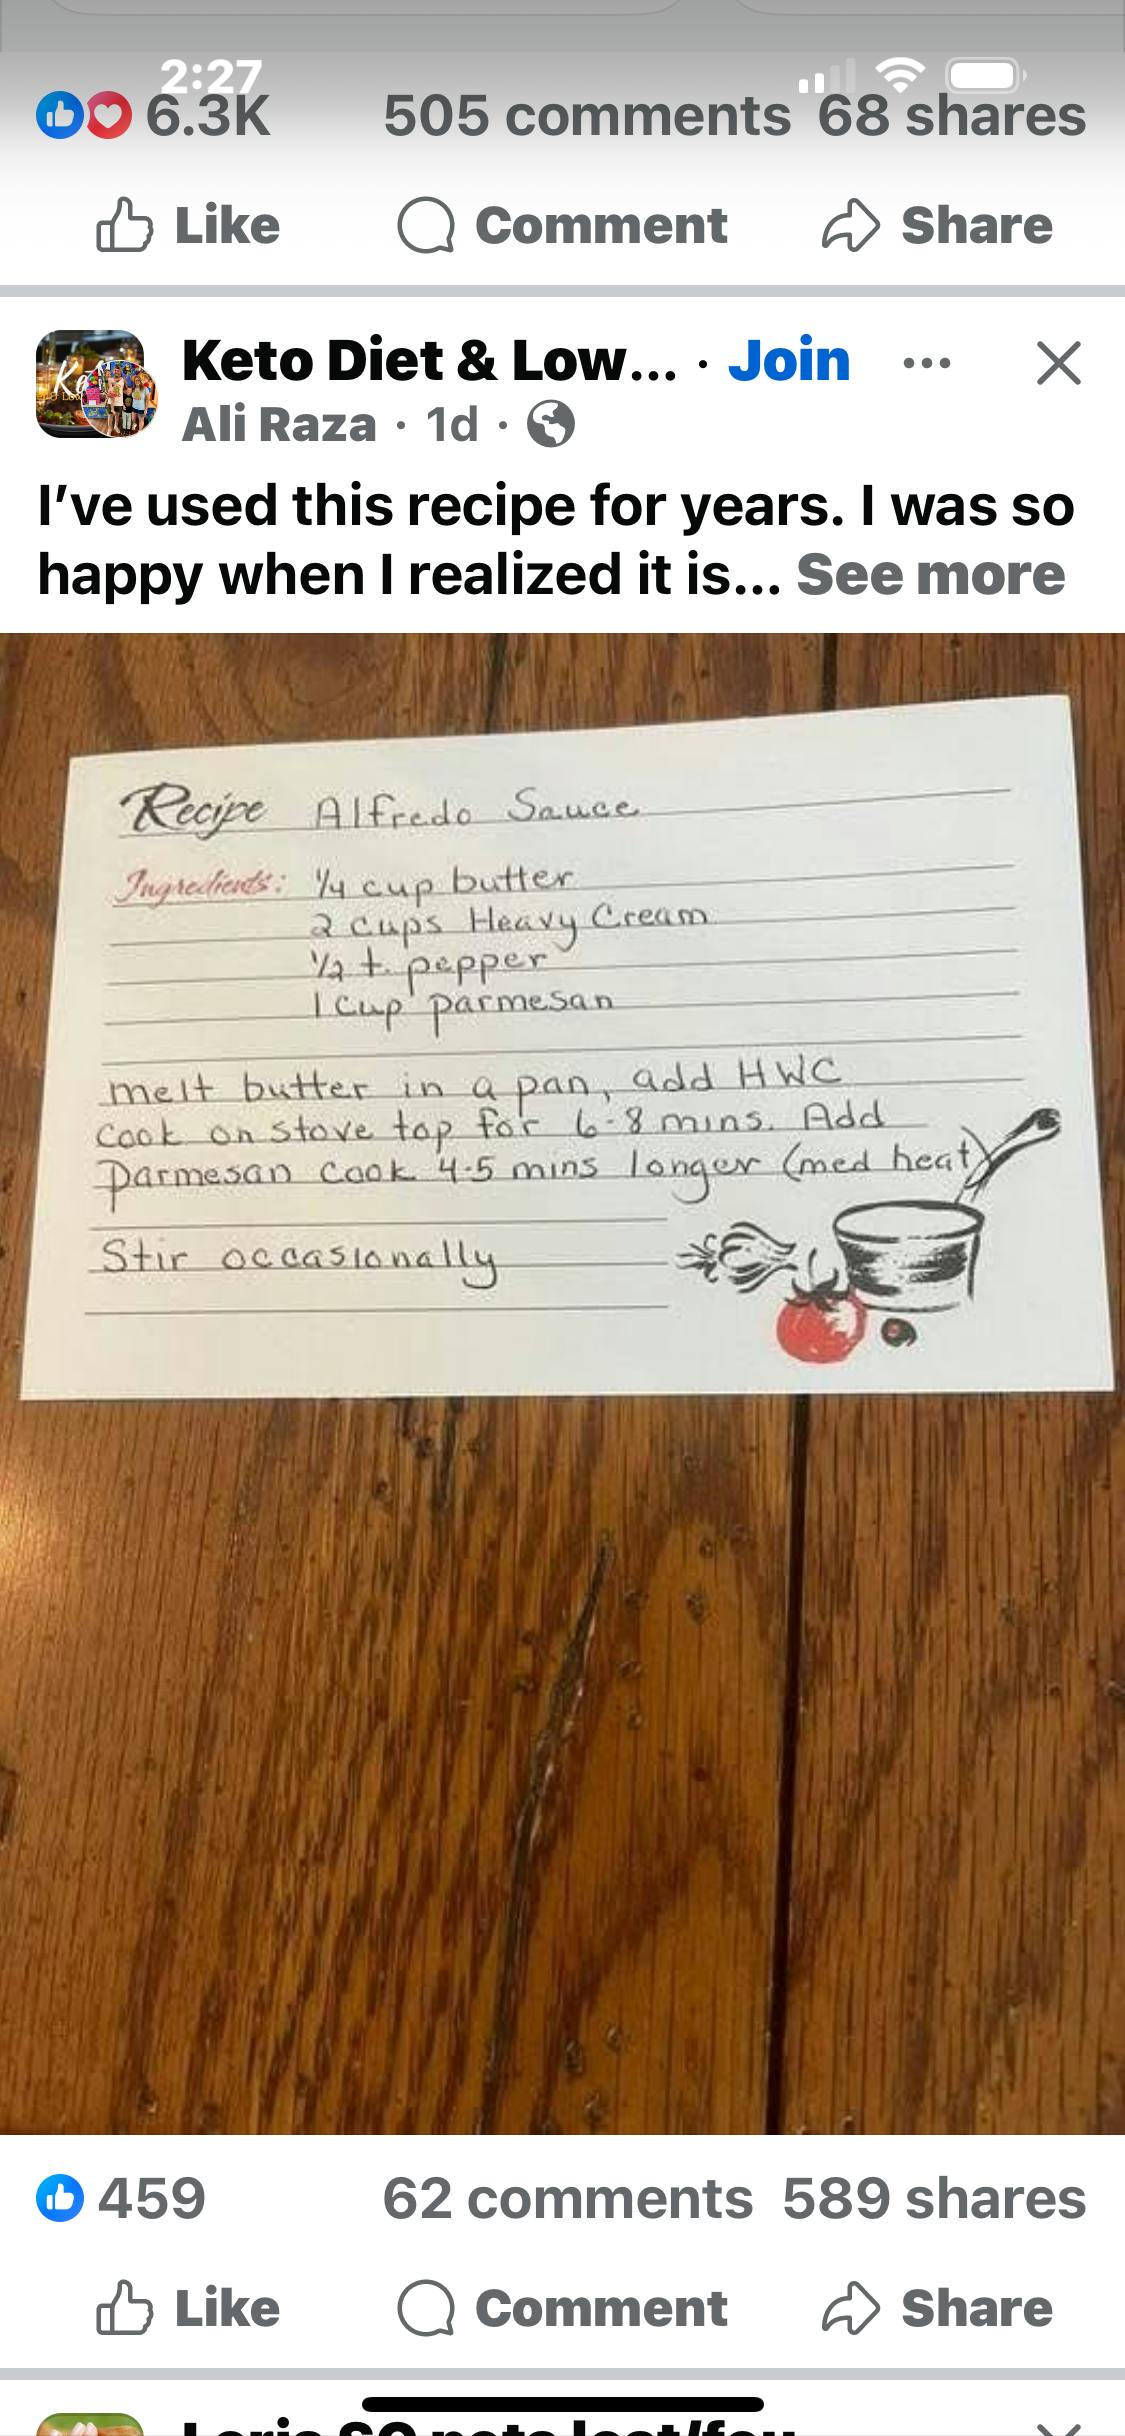 2:27
6.3K 505 comments 68 shares
Like Comment Share
Keto Diet & Low... · Join
Ali Raza · 1d ·
I’ve used this recipe for years. I was so
happy when I realized it is... See more
Recipe Alfredo Sauce
Ingredients: 1/4 cup butter
2 cups Heavy Cream
1/2 t. pepper
1 cup parmesan
melt butter in a pan, add HWC
cook on stove top for 6-8 mins. Add
Parmesan cook 4-5 mins longer (med heat)
Stir occasionally
459 62 comments 589 shares
Like Comment Share